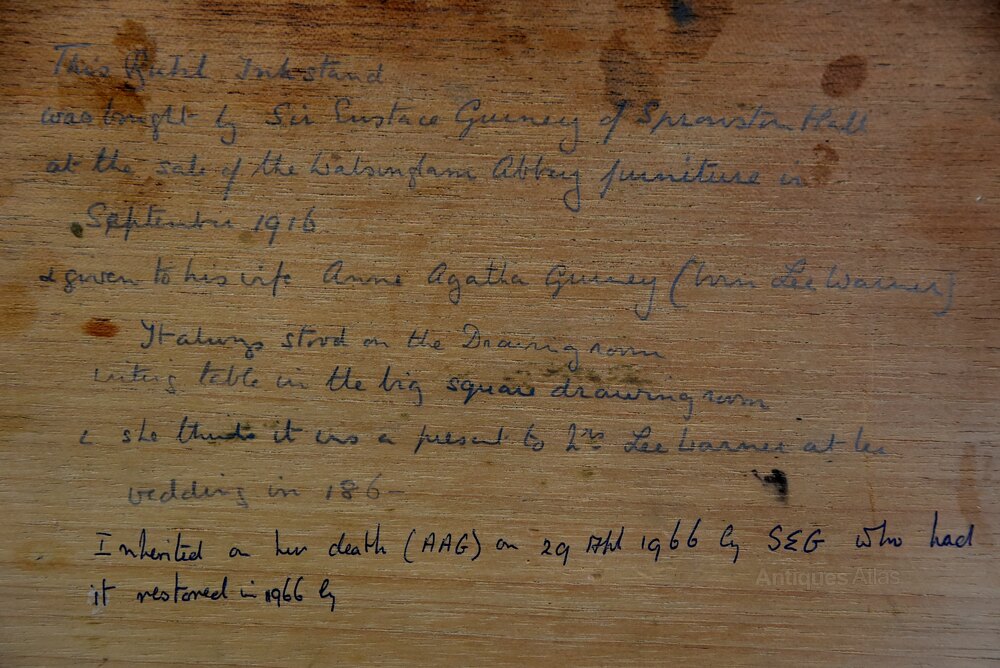 This Buhl Inkstand
was bought by Sir Eustace Gurney of Sprowston Hall
at the sale of the Walsingham Abbey furniture in
September 1916
& given to his wife Anne Agatha Gurney (born Lee Warner)
It always stood on the Drawing room
writing table in the big square drawing room
& she thinks it was a present to Mrs Lee Warner at her
wedding in 186-
Inherited on her death (AAG) on 29 April 1966 by SEG who had
it restored in 1966 by
Antiques Atlas